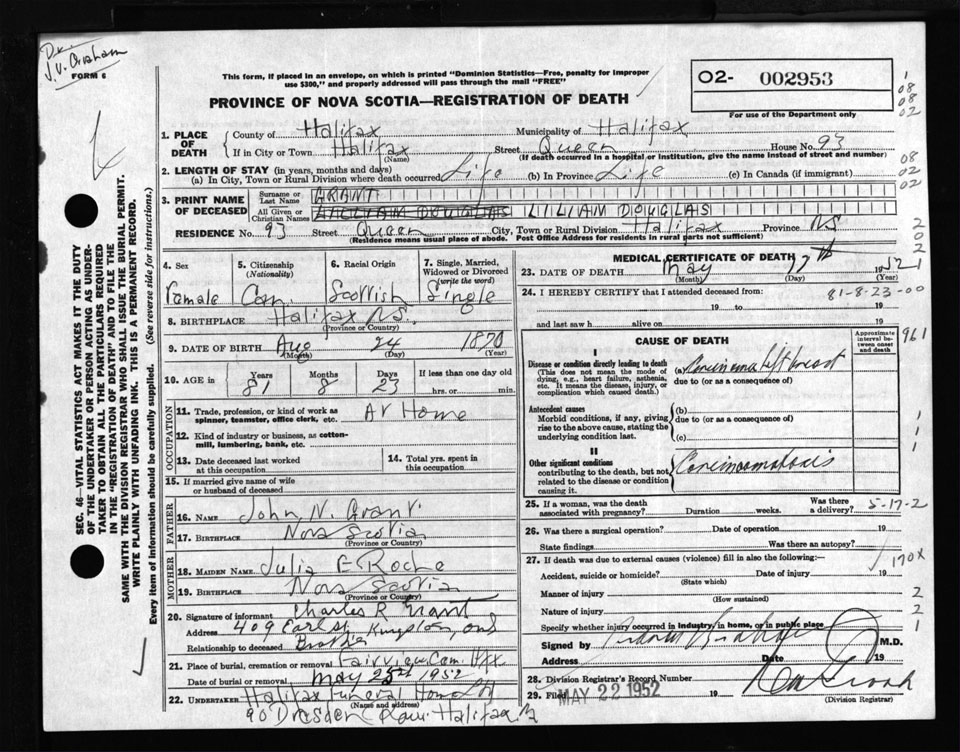 Dr.
J.V. Graham
FORM 6
This form, if placed in an envelope, on which is printed "Dominion Statistics—Free, penalty for improper
use $300," and properly addressed will pass through the mail "FREE"
PROVINCE OF NOVA SCOTIA—REGISTRATION OF DEATH
O2- 002953
For use of the Department only
1. PLACE OF DEATH County of Halifax Municipality of Halifax
If in City or Town Halifax Street Queen House No. 93
(Name) (If death occurred in a hospital or institution, give the name instead of street and number)
2. LENGTH OF STAY (in years, months and days)
(a) In City, Town or Rural Division where death occurred Life (b) In Province Life (c) In Canada (if immigrant)
3. PRINT NAME OF DECEASED Surname or Last Name GRANT
All Given or Christian Names LILLIAM DOUGLAS LILIAM DOUGLAS
RESIDENCE No. 93 Street Queen City, Town or Rural Division Halifax Province NS
(Residence means usual place of abode. Post Office Address for residents in rural parts not sufficient)
4. Sex Female
5. Citizenship (Nationality) Can.
6. Racial Origin Scottish
7. Single, Married, Widowed or Divorced (write the word) Single
8. BIRTHPLACE Halifax NS.
(Province or Country)
9. DATE OF BIRTH Aug 24 1870
(Month) (Day) (Year)
10. AGE in Years Months Days If less than one day old
81 8 23 hrs. or min.
OCCUPATION
11. Trade, profession, or kind of work as spinner, teamster, office clerk, etc. At Home
12. Kind of industry or business, as cotton-mill, lumbering, bank, etc.
13. Date deceased last worked at this occupation
14. Total yrs. spent in this occupation
15. If married give name of wife or husband of deceased
FATHER
16. NAME John N. Grant
17. BIRTHPLACE Nova Scotia
(Province or Country)
MOTHER
18. MAIDEN NAME Julia E Roche
19. BIRTHPLACE Nova Scotia
(Province or Country)
20. Signature of informant Charles R Grant
Address 409 Earl St Kingston, Ont
Relationship to deceased Brother
21. Place of burial, cremation or removal Fairview Cem. Hfx
Date of burial or removal May 1952
22. UNDERTAKER Halifax Funeral Home
(Name and address)
90 Dresden Row. Halifax
MEDICAL CERTIFICATE OF DEATH
23. DATE OF DEATH May 17th 1952
(Month) (Day) (Year)
24. I HEREBY CERTIFY that I attended deceased from: 81-8-23-00
19 to 19
and last saw h alive on 19
CAUSE OF DEATH
Approximate interval between onset and death
961
I
Disease or condition directly leading to death
(This does not mean the mode of dying, e.g., heart failure, asthenia, etc. It means the disease, injury, or complication which caused death.)
(a) Carcinoma left breast
due to (or as a consequence of)
Antecedent causes
Morbid conditions, if any, giving rise to the above cause, stating the underlying condition last.
(b)
due to (or as a consequence of)
(c)
II
Other significant conditions
contributing to the death, but not related to the disease or condition causing it.
Carcinomatosis
25. If a woman, was the death associated with pregnancy? Duration weeks. Was there a delivery? 5-17-2
26. Was there a surgical operation? Date of operation 19
State findings Was there an autopsy?
27. If death was due to external causes (violence) fill in also the following:—
Accident, suicide or homicide? Date of injury 19 170X
(State which)
Manner of injury
(How sustained)
Nature of injury
Specify whether injury occurred in industry, in home, or in public place
Signed by M.D.
Address Date 19
28. Division Registrar's Record Number
29. Filed MAY 22 1952 19
(Division Registrar)
SEC. 46—VITAL STATISTICS ACT MAKES IT THE DUTY
OF THE UNDERTAKER OR PERSON ACTING AS UNDER-
TAKER TO OBTAIN ALL THE PARTICULARS REQUIRED
IN THE "REGISTRATION OF DEATH" AND TO FILE THE
SAME WITH THE DIVISION REGISTRAR WHO SHALL ISSUE THE BURIAL PERMIT.
WRITE PLAINLY WITH UNFADING INK. THIS IS A PERMANENT RECORD.
Every item of information should be carefully supplied. (See reverse side for instructions.)
1
08
08
02
08
02
02
2
0
2
1
1
1
1
2
2
1